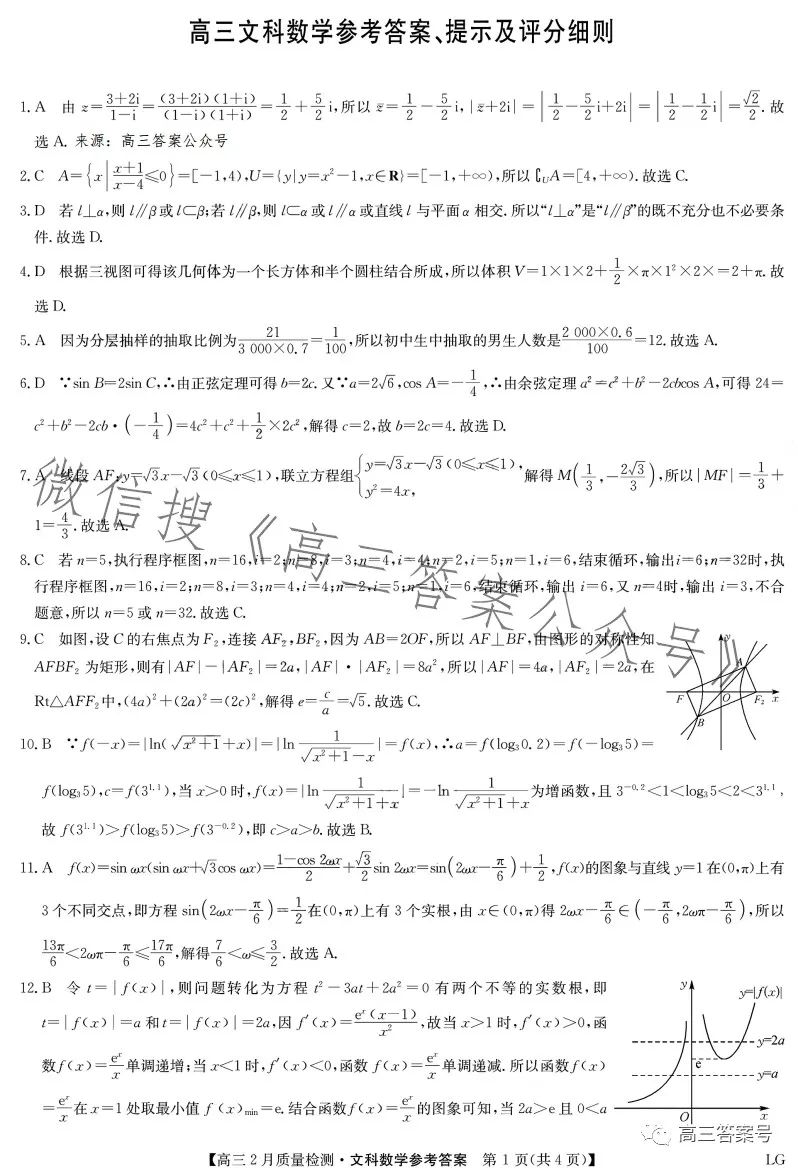 高三文科数学参考答案、提示及评分细则
1. A 由 z=\frac{3+2i}{1-i}=\frac{(3+2i)(1+i)}{(1-i)(1+i)}=\frac{1}{2}+\frac{5}{2}i,所以 \bar{z}=\frac{1}{2}-\frac{5}{2}i, |\bar{z}+2i|=|\frac{1}{2}-\frac{5}{2}i+2i|=|\frac{1}{2}-\frac{1}{2}i|=\frac{\sqrt{2}}{2}. 故
选 A. 来源：高三答案公众号
2. C A={x|\frac{x+1}{x-4}≤0}=[-1,4),U={y|y=x²-1,x∈R}=[-1,+∞),所以 ∁_UA=[4,+∞). 故选 C.
3. D 若 l⊥α,则 l∥β 或 l⊂β;若 l∥β,则 l⊂α 或 l∥α 或直线 l 与平面 α 相交. 所以“l⊥α”是“l∥β”的既不充分也不必要条
件. 故选 D.
4. D 根据三视图可得该几何体为一个长方体和半个圆柱结合所成,所以体积 V=1×1×2+\frac{1}{2}×π×1²×2×=2+π. 故
选 D.
5. A 因为分层抽样的抽取比例为\frac{21}{3 000×0.7}=\frac{1}{100},所以初中生中抽取的男生人数是\frac{2 000×0.6}{100}=12. 故选 A.
6. D ∵sin B=2sin C,∴由正弦定理可得 b=2c. 又∵a=2\sqrt{6},cos A=-\frac{1}{4},∴由余弦定理 a²=c²+b²-2cbcos A,可得 24=
c²+b²-2cb·(-\frac{1}{4})=4c²+c²+\frac{1}{2}×2c²,解得 c=2,故 b=2c=4. 故选 D.
7. A 线段 AF:y=\sqrt{3}x-\sqrt{3}(0≤x≤1),联立方程组{y=\sqrt{3}x-\sqrt{3}(0≤x≤1), y²=4x, 解得 M(\frac{1}{3},-\frac{2\sqrt{3}}{3}),所以|MF|=\frac{1}{3}+
1=\frac{4}{3}. 故选 A.
8. C 若 n=5,执行程序框图,n=16,i=2;n=8,i=3;n=4,i=4;n=2,i=5;n=1,i=6,结束循环,输出 i=6;n=32时,执
行程序框图,n=16,i=2;n=8,i=3;n=4,i=4;n=2,i=5;n=1,i=6,结束循环,输出 i=6,又 n=4时,输出 i=3,不合
题意,所以 n=5 或 n=32. 故选 C.
9. C 如图,设 C 的右焦点为 F₂,连接 AF₂,BF₂,因为 AB=2OF,所以 AF⊥BF,由图形的对称性知
AFBF₂ 为矩形,则有|AF|-|AF₂|=2a,|AF|·|AF₂|=8a²,所以|AF|=4a,|AF₂|=2a,在
Rt△AFF₂中,(4a)²+(2a)²=(2c)²,解得 e=\frac{c}{a}=\sqrt{5}. 故选 C.
y
A
F
O
F₂
x
B
10. B ∵f(-x)=|ln(\sqrt{x²+1}+x)|=|ln\frac{1}{\sqrt{x²+1}-x}|=f(x),∴a=f(log₃0.2)=f(-log₃5)=
f(log₃5),c=f(3^{1.1}),当 x>0 时,f(x)=|ln\frac{1}{\sqrt{x²+1}+x}|=-ln\frac{1}{\sqrt{x²+1}+x}为增函数,且 3^{-0.2}<1<log₃5<2<3^{1.1},
故 f(3^{1.1})>f(log₃5)>f(3^{-0.2}),即 c>a>b. 故选 B.
11. A f(x)=sin ωx(sin ωx+\sqrt{3}cos ωx)=\frac{1-cos 2ωx}{2}+\frac{\sqrt{3}}{2}sin 2ωx=sin(2ωx-\frac{π}{6})+\frac{1}{2},f(x)的图象与直线 y=1 在(0,π)上有
3 个不同交点,即方程 sin(2ωx-\frac{π}{6})=\frac{1}{2}在(0,π)上有 3 个实根,由 x∈(0,π)得 2ωx-\frac{π}{6}∈(-\frac{π}{6},2ωπ-\frac{π}{6}),所以
\frac{13π}{6}<2ωπ-\frac{π}{6}≤\frac{17π}{6},解得\frac{7}{6}<ω≤\frac{3}{2}. 故选 A.
12. B 令 t=|f(x)|,则问题转化为方程 t²-3at+2a²=0 有两个不等的实数根,即
t=|f(x)|=a 和 t=|f(x)|=2a,因 f′(x)=\frac{e^x(x-1)}{x²},故当 x>1 时,f′(x)>0,函
数 f(x)=\frac{e^x}{x}单调递增;当 x<1 时,f′(x)<0,函数 f(x)=\frac{e^x}{x}单调递减. 所以函数 f(x)
=\frac{e^x}{x}在 x=1 处取最小值 f(x)_{min}=e. 结合函数 f(x)=\frac{e^x}{x}的图象可知,当 2a>e 且 0<a
y
y=|f(x)|
y=2a
e
y=a
O
x
微信搜《高三答案公众号》
高三答案号
【高三 2 月质量检测·文科数学参考答案 第 1 页(共 4 页)】
LG